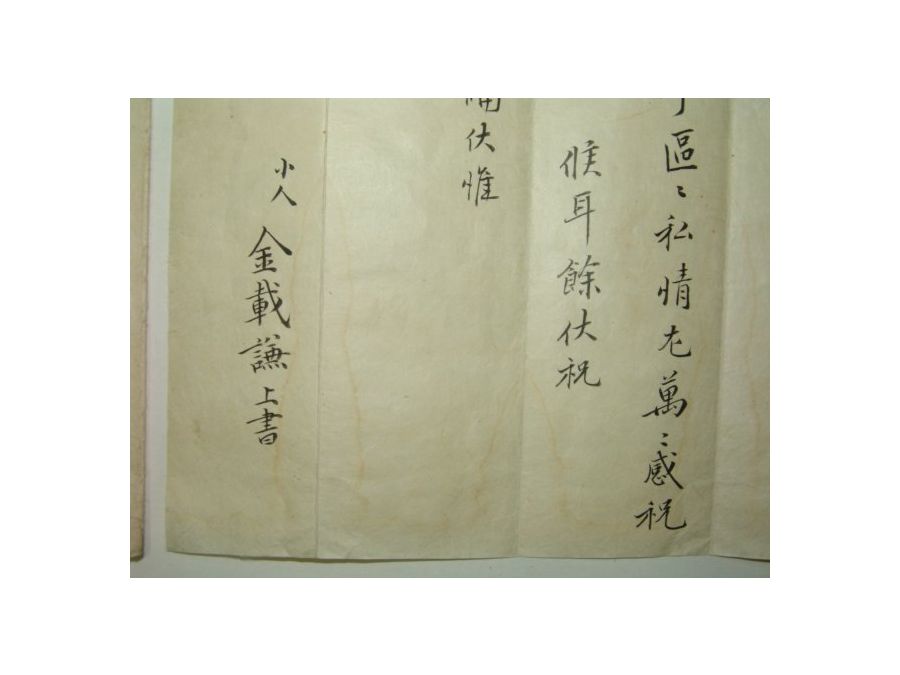 區〻私情尤萬〻感祝
候耳餘伏祝
伏惟
小人金載謙上書